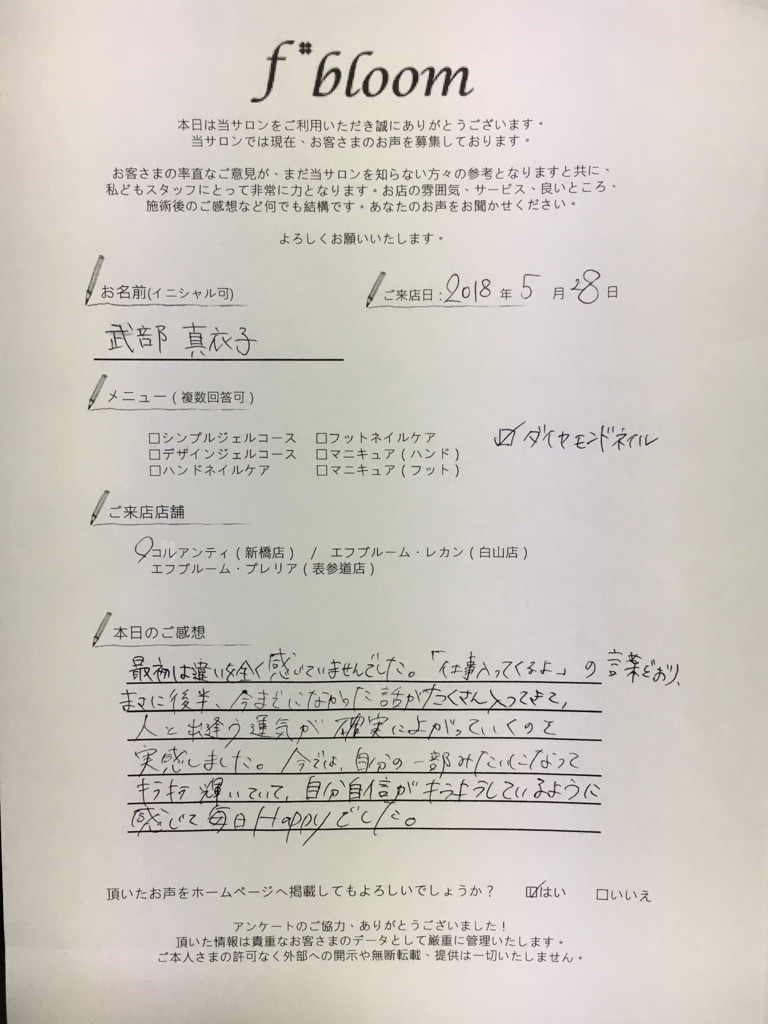 f*bloom
本日は当サロンをご利用いただき誠にありがとうございます。
当サロンでは現在、お客さまのお声を募集しております。
お客さまの率直なご意見が、まだ当サロンを知らない方々の参考となりますと共に、
私どもスタッフにとって非常に力となります。お店の雰囲気、サービス、良いところ、
施術後のご感想など何でも結構です。あなたのお声をお聞かせください。
よろしくお願いいたします。
お名前(イニシャル可)
ご来店日:2018年5月28日
武部 真衣子
メニュー(複数回答可)
□シンプルジェルコース □フットネイルケア ☑ダイヤモンドネイル
□デザインジェルコース □マニキュア(ハンド)
□ハンドネイルケア □マニキュア(フット)
ご来店店舗
コルアンティ(新橋店) / エフブルーム・レカン(白山店)
エフブルーム・プレリア(表参道店)
本日のご感想
最初は違いを全く感じていませんでした。「仕事入ってくるよ」の言葉どおり、
まさに後半、今までになかった話がたくさん入ってきて、
人と出逢う運気が確実に上がっていくのを
実感しました。今では、自分の一部みたいになって
キラキラ輝いていて、自分自信がキラキラしているように
感じて毎日Happyでした。
頂いたお声をホームページへ掲載してもよろしいでしょうか? ☑はい □いいえ
アンケートのご協力、ありがとうございました!
頂いた情報は貴重なお客さまのデータとして厳重に管理いたします。
ご本人さまの許可なく外部への開示や無断転載、提供は一切いたしません。